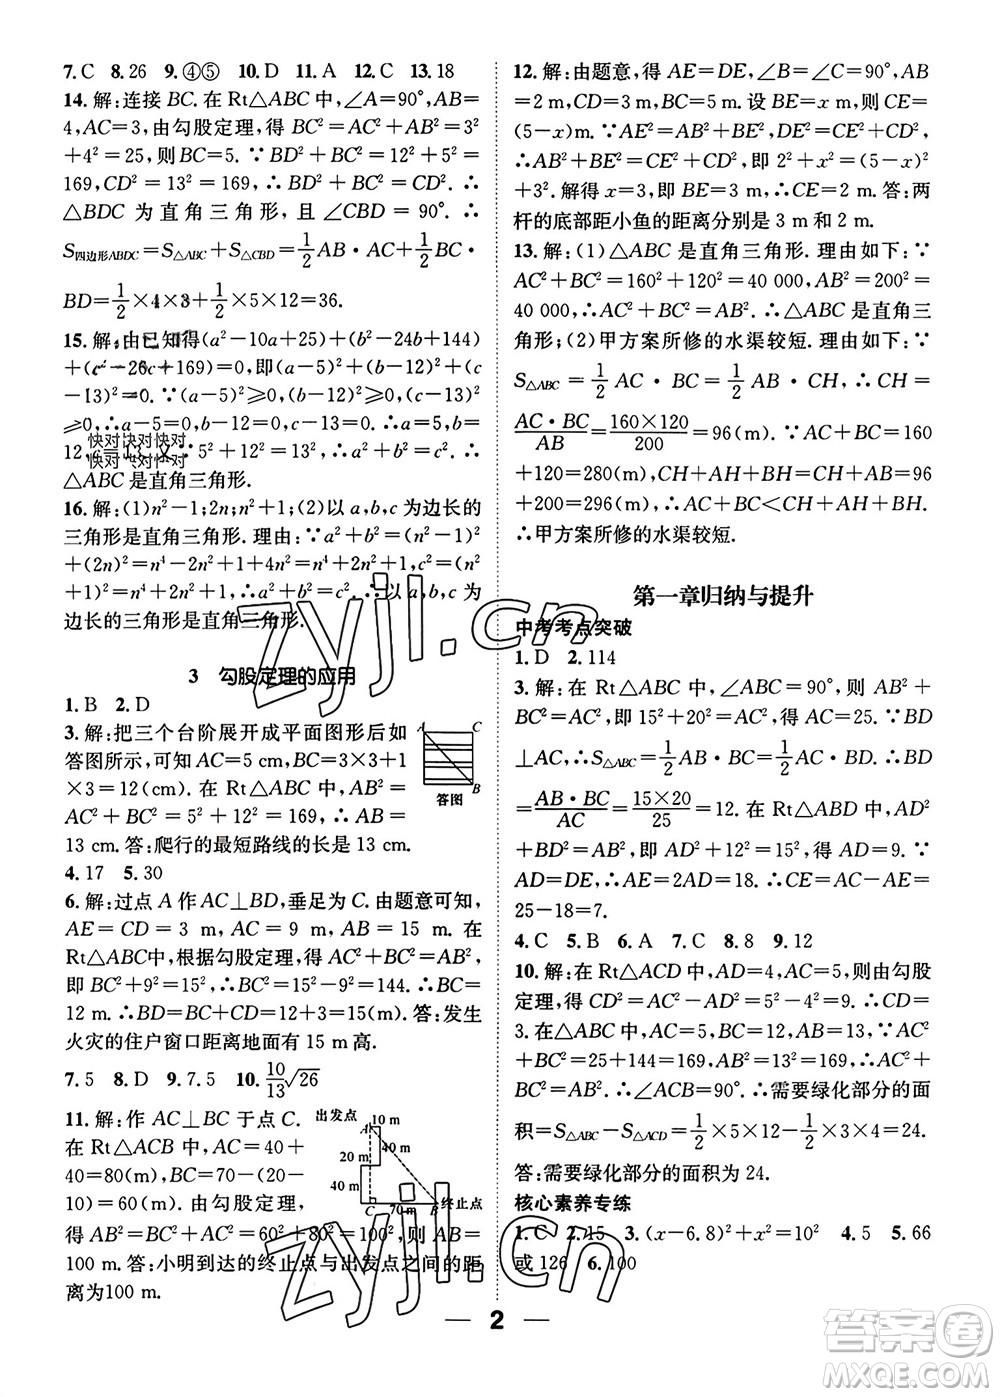 7. C  8. 26  9. ④⑤  10. D  11. A  12. C  13. 18
14. 解:连接 BC. 在 Rt△ABC 中,∠A=90°,AB=
4,AC=3,由勾股定理,得 BC²=AC²+AB²=3²
+4²=25,则BC=5. ∵BD²+BC²=12²+5²=
169,CD²=13²=169,∴BD²+BC²=CD². ∴
△BDC 为直角三角形,且∠CBD=90°. ∴
S四边形ABDC=S△ABC+S△CBD=1/2AB·AC+1/2BC·
BD=1/2×4×3+1/2×5×12=36.
15. 解:由已知得(a²-10a+25)+(b²-24b+144)
+(c²-26c+169)=0,即(a-5)²+(b-12)²+(c
-13)²=0. ∵(a-5)²≥0,(b-12)²≥0,(c-13)²
≥0,∴a-5=0,b-12=0,c-13=0. ∴a=5,b=
12,c=13. 又∵5²+12²=13²,∴a²+b²=c². ∴
△ABC是直角三角形.
快对快对快对
快对快对快对
16. 解:(1)n²-1;2n;n²+1 (2)以a,b,c为边长的
三角形是直角三角形. 理由:∵a²+b²=(n²-1)²
+(2n)²=n⁴-2n²+1+4n²=n⁴+2n²+1,c²=
(n²+1)²=n⁴+2n²+1,∴a²+b²=c². ∴以a,b,c为
边长的三角形是直角三角形.
3 勾股定理的应用
1. B  2. D
3. 解:把三个台阶展开成平面图形后如
答图所示,可知AC=5 cm,BC=3×3+1
×3=12(cm). 在Rt△ABC中,AB²=
AC²+BC²=5²+12²=169,∴AB=
13 cm. 答:爬行的最短路线的长是13 cm.
A C
B
答图
4. 17  5. 30
6. 解:过点 A 作 AC⊥BD,垂足为 C. 由题意可知,
AE=CD=3 m,AC=9 m,AB=15 m. 在
Rt△ABC中,根据勾股定理,得AC²+BC²=AB²,
即BC²+9²=15²,∴BC²=15²-9²=144,∴BC=
12 m. ∴BD=BC+CD=12+3=15(m). 答:发生
火灾的住户窗口距离地面有15 m高.
7. 5  8. D  9. 7.5  10. 10/13√26
11. 解:作AC⊥BC于点C.
在Rt△ACB中,AC=40+
40=80(m),BC=70-(20-
10)=60(m). 由勾股定理,
得AB²=AC²+BC²=60²+80²=100²,∴AB=
100 m. 答:小明到达的终止点与出发点之间的距
离为100 m.
出发点 10 m
A 40 m
20 m
40 m
C 70 m B 终止点
12. 解:由题意,得AE=DE,∠B=∠C=90°,AB
=2 m,CD=3 m,BC=5 m. 设BE=x m,则CE=
(5-x)m. ∵AE²=AB²+BE²,DE²=CE²+CD²,
∴AB²+BE²=CE²+CD²,即2²+x²=(5-x)²
+3². 解得x=3,即BE=3 m,∴CE=2 m. 答:两
杆的底部距小鱼的距离分别是 3 m 和 2 m.
13. 解:(1)△ABC是直角三角形. 理由如下:∵
AC²+BC²=160²+120²=40 000,AB²=200²=
40 000,∴AC²+BC²=AB²,∴△ABC是直角三
角形;(2)甲方案所修的水渠较短. 理由如下:∵
S△ABC=1/2AC·BC=1/2AB·CH,∴CH=
AC·BC/AB=160×120/200=96(m). ∵AC+BC=160
+120=280(m),CH+AH+BH=CH+AB=96
+200=296(m),∴AC+BC<CH+AH+BH.
∴甲方案所修的水渠较短.
第一章归纳与提升
中考考点突破
1. D  2. 114
3. 解:在Rt△ABC中,∠ABC=90°,则AB²+
BC²=AC²,即15²+20²=AC²,得AC=25. ∵BD
⊥AC,∴S△ABC=1/2AB·BC=1/2AC·BD. ∴BD
=AB·BC/AC=15×20/25=12. 在Rt△ABD中,AD²+
BD²=AB²,即AD²+12²=15²,解得AD=9. ∵
AD=DE,∴AE=2AD=18. ∴CE=AC-AE=
25-18=7.
4. C  5. B  6. A  7. C  8. 8  9. 12
10. 解:在Rt△ACD中,AD=4,AC=5,则由勾股
定理,得CD²=AC²-AD²=5²-4²=9,∴CD=
3. 在△ABC中,AC=5,BC=12,AB=13,∵AC²
+BC²=25+144=169,AB²=13²=169,∴AC²
+BC²=AB². ∴∠ACB=90°. ∴需要绿化部分的面
积=S△ABC-S△ACD=1/2×5×12-1/2×4×3=24.
答:需要绿化部分的面积为 24.
核心素养专练
1. C  2. 15  3. (x-6.8)²+x²=10²  4. 5  5. 66
或 126  6. 100
2
zyjl.cn
zyjl.cn
答案圈
MXQE.COM